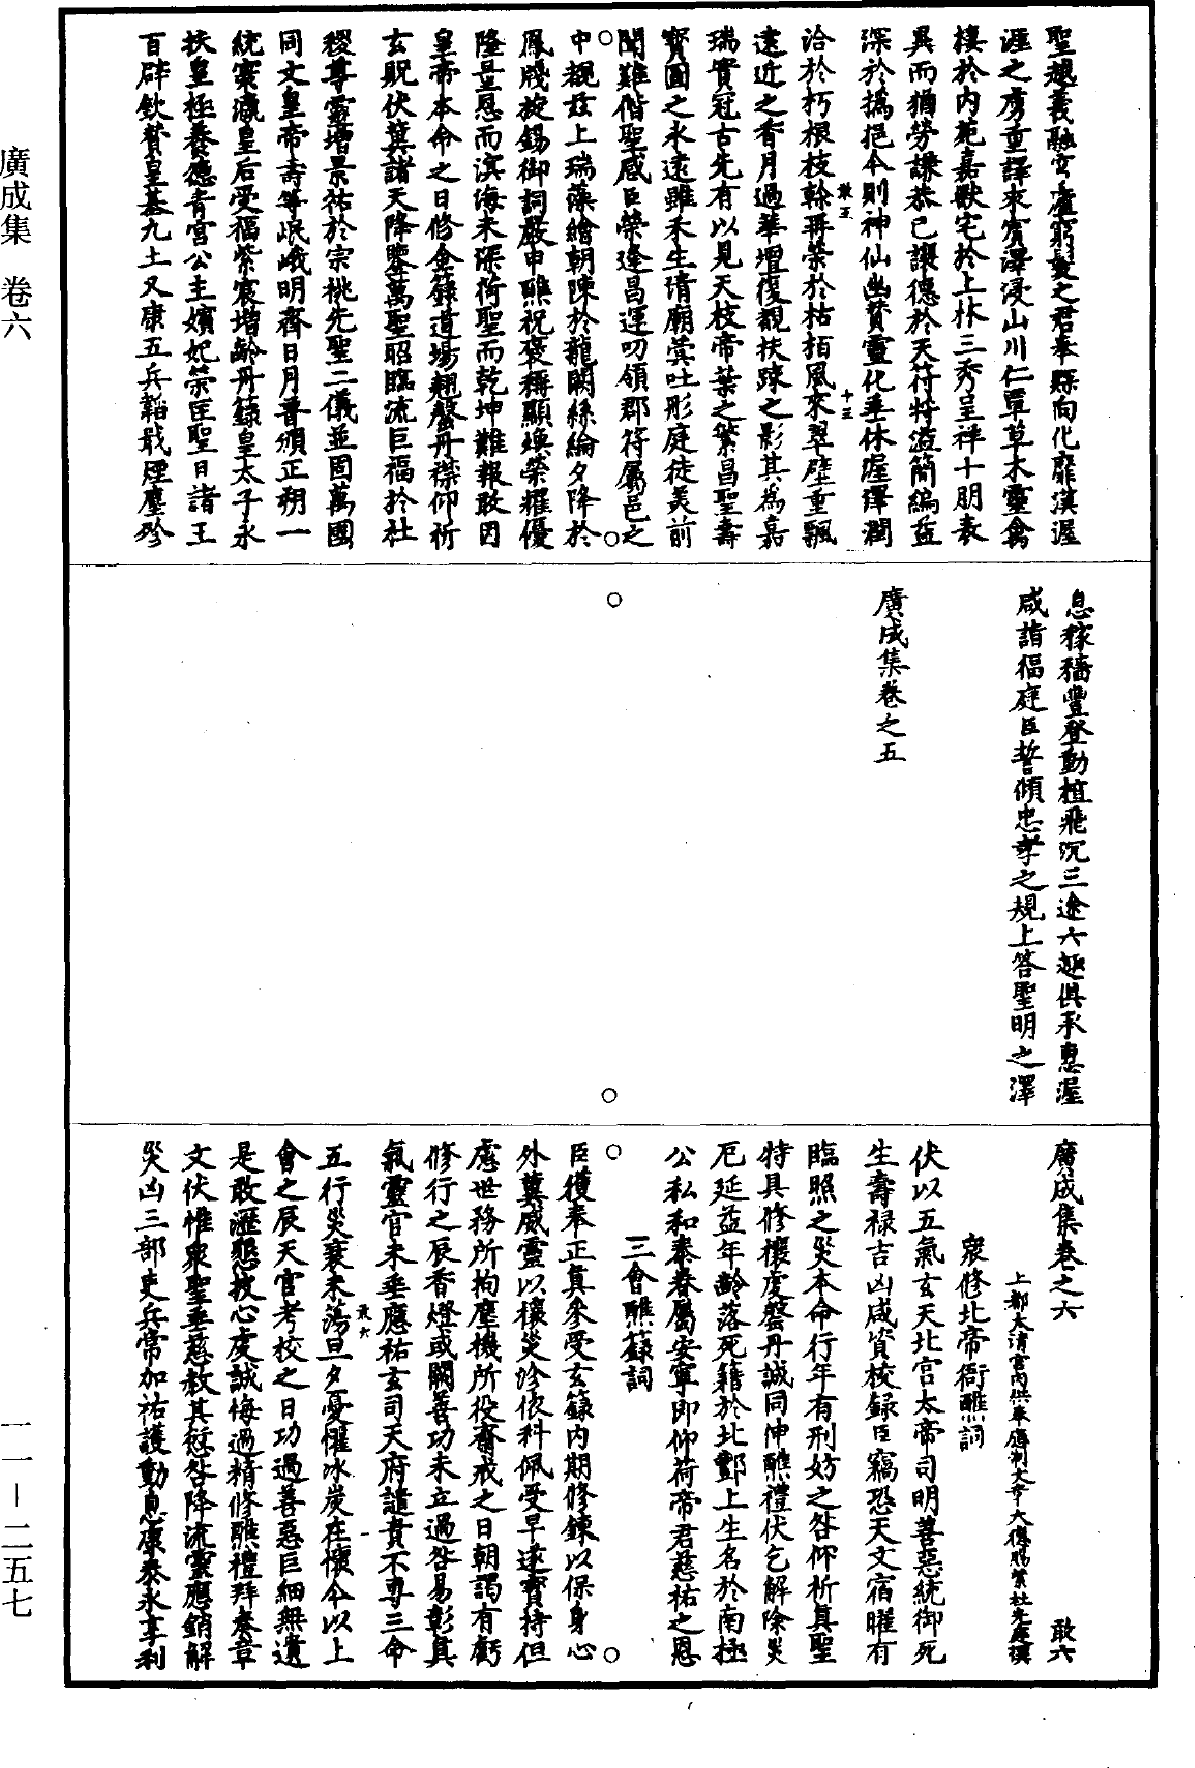 聖越義融宮盧窮髮之君奉縣向化靡漠渥
涯之虜重譯來賓澤浸山川仁覃草木靈禽
棲於內苑嘉獸宅於上林三秀呈祥十朋表
異而猶勞謙恭己讓德於天符特溢簡編益
深於撝挹今則神仙幽贊靈化垂休渥澤潤
洽於朽根枝榦再榮於枯栢風來翠壁重飄
遠近之香月過華壇復覩扶疎之影其為嘉
瑞實冠古先有以見天枝帝葉之繁昌聖壽
寶圖之永遠雖禾生清廟蓂吐彤庭徒美前
聞難偕聖感臣榮逢昌運叨領郡符屬邑之
中覩茲上瑞藻繪朝陳於龍闕絲綸夕降於
鳳牋旋錫御詞嚴申醮祝褒稱顯煥榮耀優
隆量恩而溟海未深荷聖而乾坤難報敢因
皇帝本命之日修金籙道場翹罄丹襟仰祈
玄貺伏冀諸天降鑒萬聖昭臨流巨福於社
稷尊靈增景祐於宗祧先聖二儀並固萬國
同文皇帝壽等岷峨明齊日月普頒正朔一
統寰瀛皇后受福紫宸增齡丹籙皇太子永
扶皇極養德青宮公主嬪妃榮匡聖日諸王
百辟欽贊皇基九土乂康五兵韜戢煙塵殄
息稼穡豐登動植飛沉三途六趣俱承惠渥
咸詣福庭臣誓傾忠孝之規上答聖明之澤
廣成集卷之五
廣成集卷之六 敢六
上都太清宮內供奉應制文章大德賜紫杜光庭撰
衆修北帝衙醮詞
伏以五氣玄天北宮太帝司明善惡統御死
生壽祿吉凶咸資校錄臣竊恐天文宿曜有
臨照之災本命行年有刑妨之咎仰祈真聖
特具修禳虔罄丹誠同伸醮禮伏乞解除災
厄延益年齡落死籍於北酆上生名於南極
公私和泰眷屬安寧即仰荷帝君慈祐之恩
三會醮籙詞
臣獲奉正真參受玄籙內期修鍊以保身心
外冀威靈以禳災沴依科佩受早遂寶持但
慮世務所拘塵機所役齋戒之日朝謁有虧
修行之辰香燈或闕善功未立過咎易彰真
氣靈官未垂應祐玄司天府譴責不專三命
五行災衰未蕩旦夕憂懼冰炭在懷今以上
會之辰天官考校之日功過善惡巨細無遺
是敢瀝懇披心虔誠悔過精修醮禮拜奏章
文伏惟衆聖垂慈赦其愆咎降流靈應銷解
災凶三部吏兵常加祐護動息康泰永享利
廣成集 卷六
一一－二五七